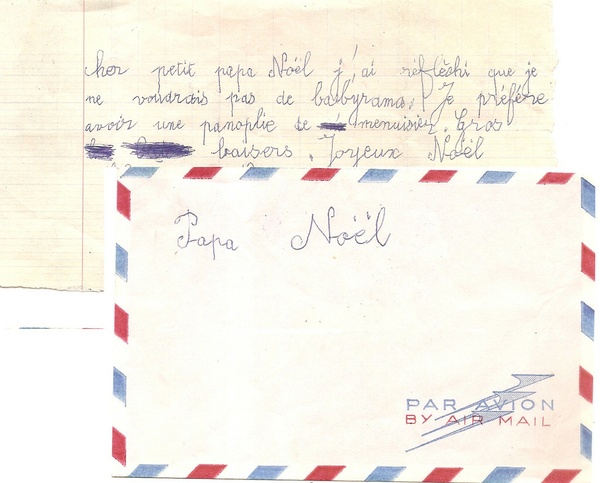 cher petit papa Noël j'ai réfléchi que je
ne voudrais pas de babyrama. Je préfère
avoir une panoplie de menuisier. Gros
baisers. Joyeux Noël
Papa Noël
PAR AVION
BY AIR MAIL